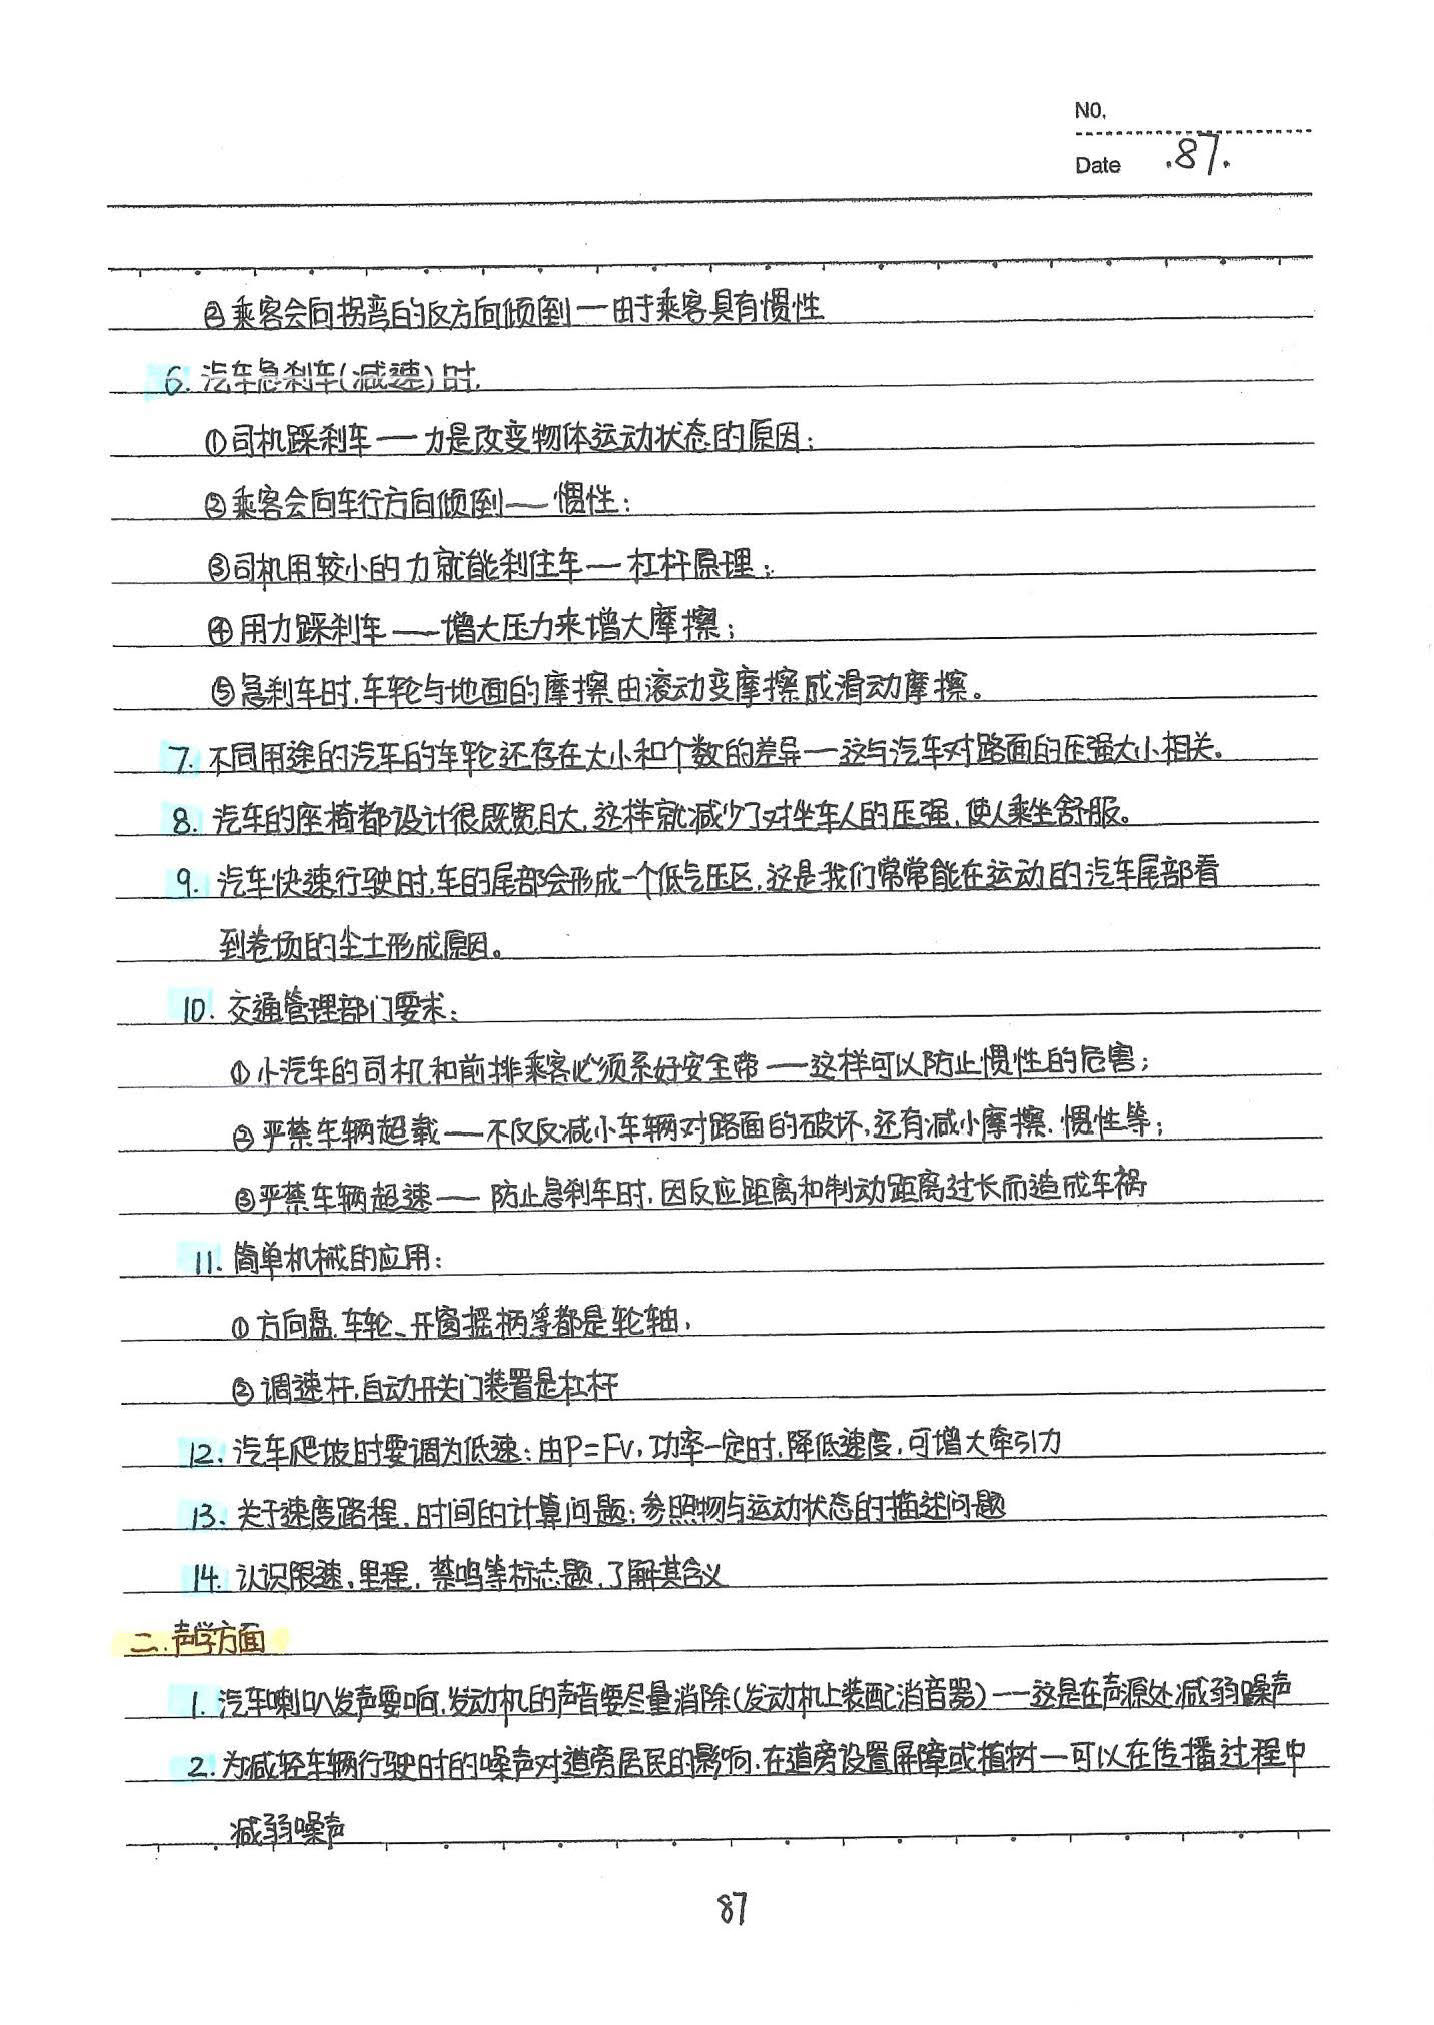 NO.
Date .87.
②乘客会向拐弯的反方向倾倒—由于乘客具有惯性
6. 汽车急刹车(减速)时,
①司机踩刹车——力是改变物体运动状态的原因;
②乘客会向车行方向倾倒——惯性;
③司机用较小的力就能刹住车—杠杆原理;
④用力踩刹车——增大压力来增大摩擦;
⑤急刹车时,车轮与地面的摩擦由滚动变摩擦成滑动摩擦。
7. 不同用途的汽车的车轮还存在大小和个数的差异—这与汽车对路面的压强大小相关。
8. 汽车的座椅都设计很既宽且大,这样就减少了对坐车人的压强,使人乘坐舒服。
9. 汽车快速行驶时,车的尾部会形成一个低气压区,这是我们常常能在运动的汽车尾部看
到卷扬的尘土形成原因。
10. 交通管理部门要求:
①小汽车的司机和前排乘客必须系好安全带—这样可以防止惯性的危害;
②严禁车辆超载——不仅仅减小车辆对路面的破坏,还有减小摩擦、惯性等;
③严禁车辆超速——防止急刹车时,因反应距离和制动距离过长而造成车祸
11. 简单机械的应用:
①方向盘、车轮、开窗摇柄等都是轮轴,
②调速杆,自动开关门装置是杠杆
12. 汽车爬坡时要调为低速:由P=Fv,功率一定时,降低速度,可增大牵引力
13. 关于速度路程,时间的计算问题;参照物与运动状态的描述问题
14. 认识限速,里程,禁鸣等标志题,了解其含义
二.声学方面
1. 汽车喇叭发声要响,发动机的声音要尽量消除(发动机上装配消音器)——这是在声源处减弱噪声
2. 为减轻车辆行驶时的噪声对道旁居民的影响,在道旁设置屏障或植树—可以在传播过程中
减弱噪声
87